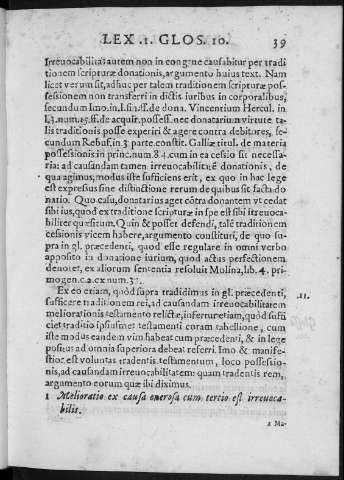 LEX .1. GLOS. 10. 39
Irreuocabilitas autem non in congrue causabitur per tradi
tionem scripturæ donationis, argumento huius text. Nam
licet verum sit, ad huc per talem traditionem scripturæ pos-
sessionem non transferri in dictis iuribus in corporalibus,
secundum Imo. in. l. si n. ff. de dona. Vincentium Hercul. in
l. 3. num. 45. ff. de acquir. possess. nec donatarium virtute ta-
lis traditionis posse experiri & agere contra debitores, se-
cundum Rebuf. in 3. parte. constit. Galliæ titul. de materia
possessionis in princ. num. 84. cum in ea cessio sit necessa-
ria: ad causandam tamen irreuocabilitatē donationis, de
qua agimus, modus iste sufficiens erit, ex quo in hac lege
est expressius sine distinctione rerum de quibus sit facta do
natio. Quo casu, donatarius aget cōtra donantem vt cedat
sibi ius, quod ex traditione scripturæ in spe est sibi irreuoca-
biliter quæsitum. Quin & posset defendi, talē traditionem
cessionis vicem habere, argumento constituti, de quo su-
pra in gl. præcedenti, quod esse regulare in omni verbo
apposito in donatione iurium, quod actus perfectionem
denotet, ex aliorum sententia resoluit Molina, lib. 4. pri-
mogen. c. 2. ex num. 32.
Ex eo etiam, quòd supra tradidimus in gl. præcedenti, .11.
sufficere traditionem rei, ad causandam irreuocabilitatem
meliorationis testamento relictæ, infertur etiam, quòd suffi
ciet traditio ipsiusmet testamenti coram tabellione, cum
iste modus eandem vim habeat cum præcedenti, & in lege
positus ad omnia superiora debeat referri. Imo & manife-
stior est voluntas tradentis testamentum, loco possessio-
nis, ad causandam irreuocabilitatem: quam tradentis rem,
argumento eorum quæ ibi diximus.
1 Melioratio ex causa onerosa cum tertio est irreuoca-
bilis.
2 Ma-